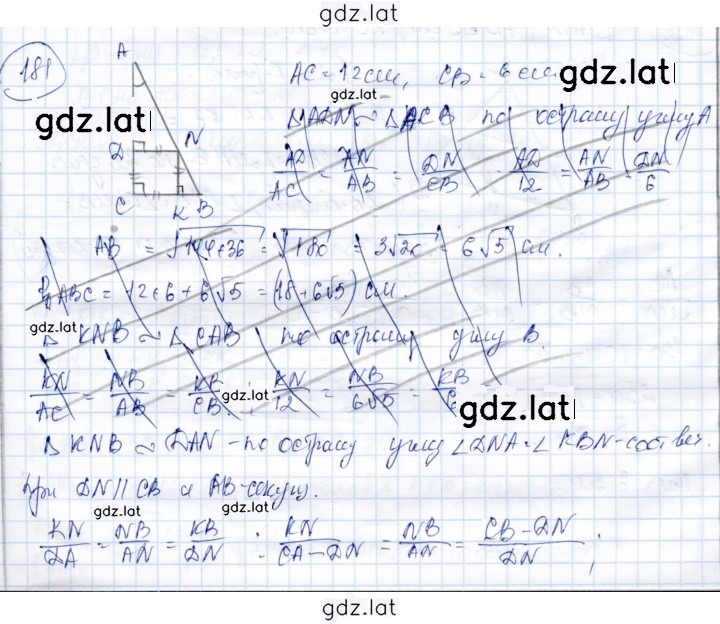 gdz.lat
181
A
D
N
C
K B
AC = 12 см, CB = 6 см
gdz.lat
gdz.lat
gdz.lat
Δ ADN ~ Δ ACB по острому углу A
AD/AC = AN/AB = DN/CB AD/12 = AN/AB = DN/6
AB = √144+36 = √180 = 3√20 = 6√5 см.
P ABC = 12+6+6√5 = (18+6√5) см.
gdz.lat
Δ KNB ~ Δ CAB по острому углу B.
KN/AC = NB/AB = KB/CB ; KN/12 = NB/6√5 = KB/
gdz.lat
gdz.lat
Δ KNB ~ DAN - по острому углу ∠DNA = ∠KBN - соответ.
при DN || CB и AB - секущ.
gdz.lat
KN/DA = NB/AN = KB/DN ; KN/CA-DN = NB/AN = CB-DN/DN ;
gdz.lat